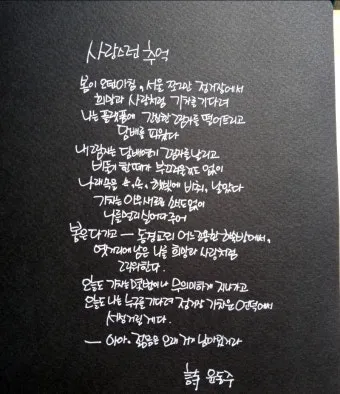 사랑스런 추억
봄이 오던 아침, 서울 조그만 정거장에서
희망과 사랑처럼 기차를 기다려
나는 플랫폼에 간신한 그림자를 떨어뜨리고
담배를 피웠다
내 그림자는 담배연기 그림자를 날리고
비둘기 한 떼가 부끄러울 것도 없이
나래 속을 속, 속, 햇빛에 비춰, 날았다
기차는 아무 새로운 소식도 없이
나를 멀리 실어다 주어
봄은 다 가고 — 동경 교외 어느 조용한 하숙방에서,
옛거리에 남은 나를 희망과 사랑처럼
그리워한다.
오늘도 기차는 몇 번이나 무의미하게 지나가고
오늘도 나는 누구를 기다려 정거장 가차운 언덕에서
서성거릴 게다.
— 아아. 젊음은 오래 거기 남아 있거라
詩 윤동주